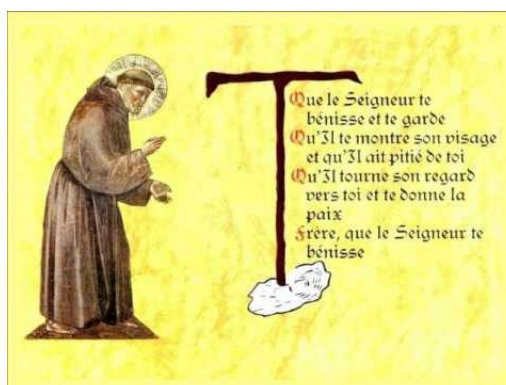 Que le Seigneur te
bénisse et te garde
Qu'Il te montre son visage
et qu'Il ait pitié de toi
Qu'Il tourne son regard
vers toi et te donne la
paix
Frère, que le Seigneur te
bénisse